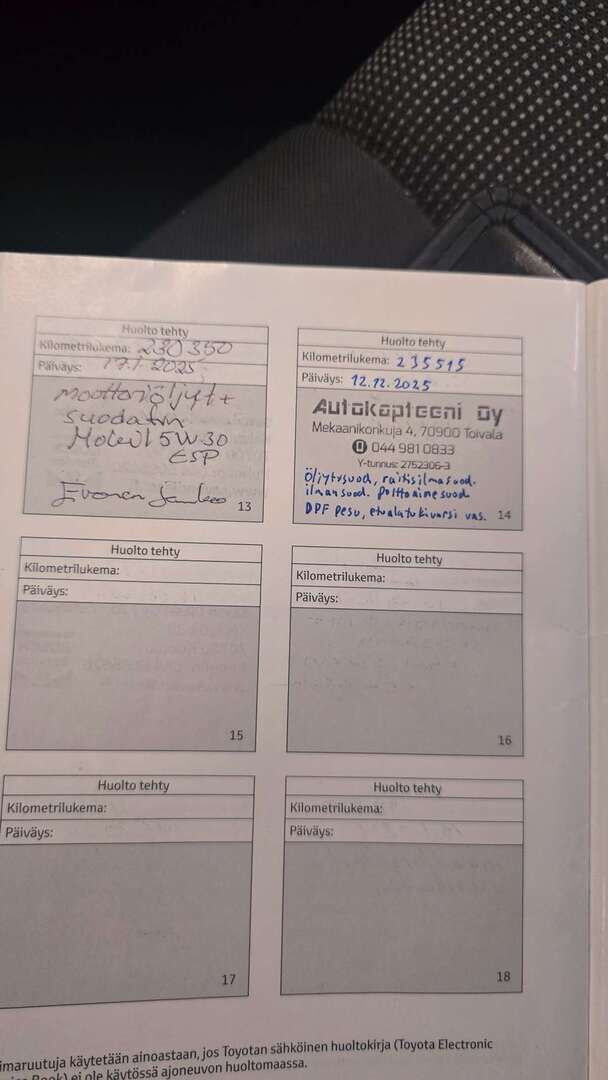 Huolto tehty
Kilometrilukema: 230350
Päiväys: 17.1.2025
moottoriöljyt+
suodatin
Mobil 5W30
ESP
13
Huolto tehty
Kilometrilukema: 235515
Päiväys: 12.12.2025
Autokapteeni Oy
Mekaanikonkuja 4, 70900 Toivala
044 981 0833
Y-tunnus: 2752306-3
Öljyt+suod, raitisilmasuod.
ilmansuod. polttoainesuod
DPF pesu, etualatukivarsi vas.
14
Huolto tehty
Kilometrilukema:
Päiväys:
15
Huolto tehty
Kilometrilukema:
Päiväys:
16
Huolto tehty
Kilometrilukema:
Päiväys:
17
Huolto tehty
Kilometrilukema:
Päiväys:
18
imaruutuja käytetään ainoastaan, jos Toyotan sähköinen huoltokirja (Toyota Electronic
Book) ei ole käytössä ajoneuvon huoltomaassa.